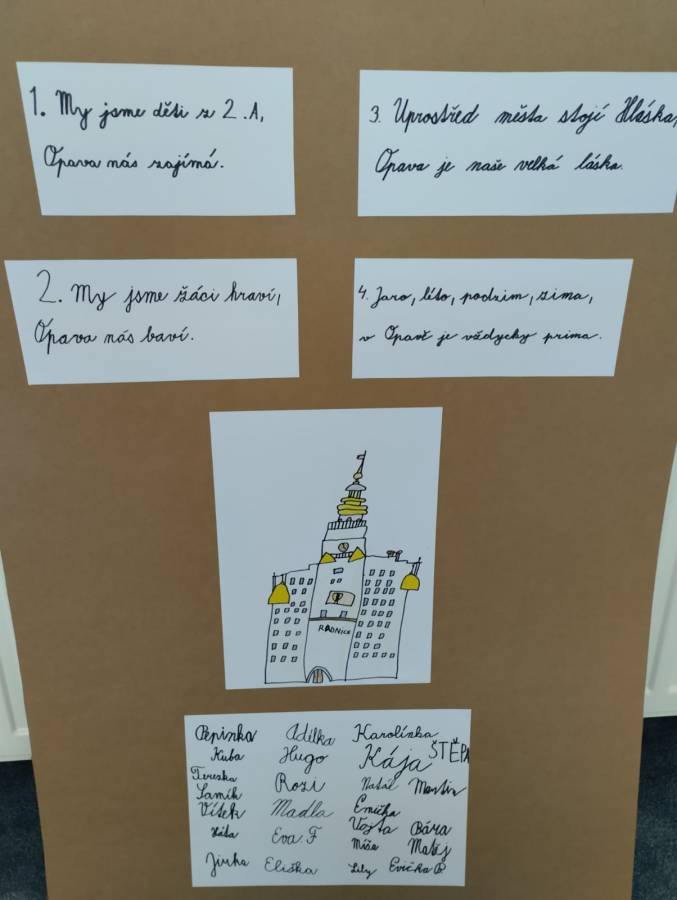 1. My jsme děti z 2.A,
Opava nás zajímá.
2. My jsme žáci hraví,
Opava nás baví.
3. Uprostřed města stojí Hláska,
Opava je naše velká láska.
4. Jaro, léto, podzim, zima,
v Opavě je vždycky prima.
RADNICE
Pepinka Adélka Karolínka
Kuba Hugo Kája ŠTĚPA
Terezka Rozi Natál Martin
Samík Emička
Vítek Madla Vojta Bára
Eva.F Míša Matěj
Jirka Eliška Lily Evička B